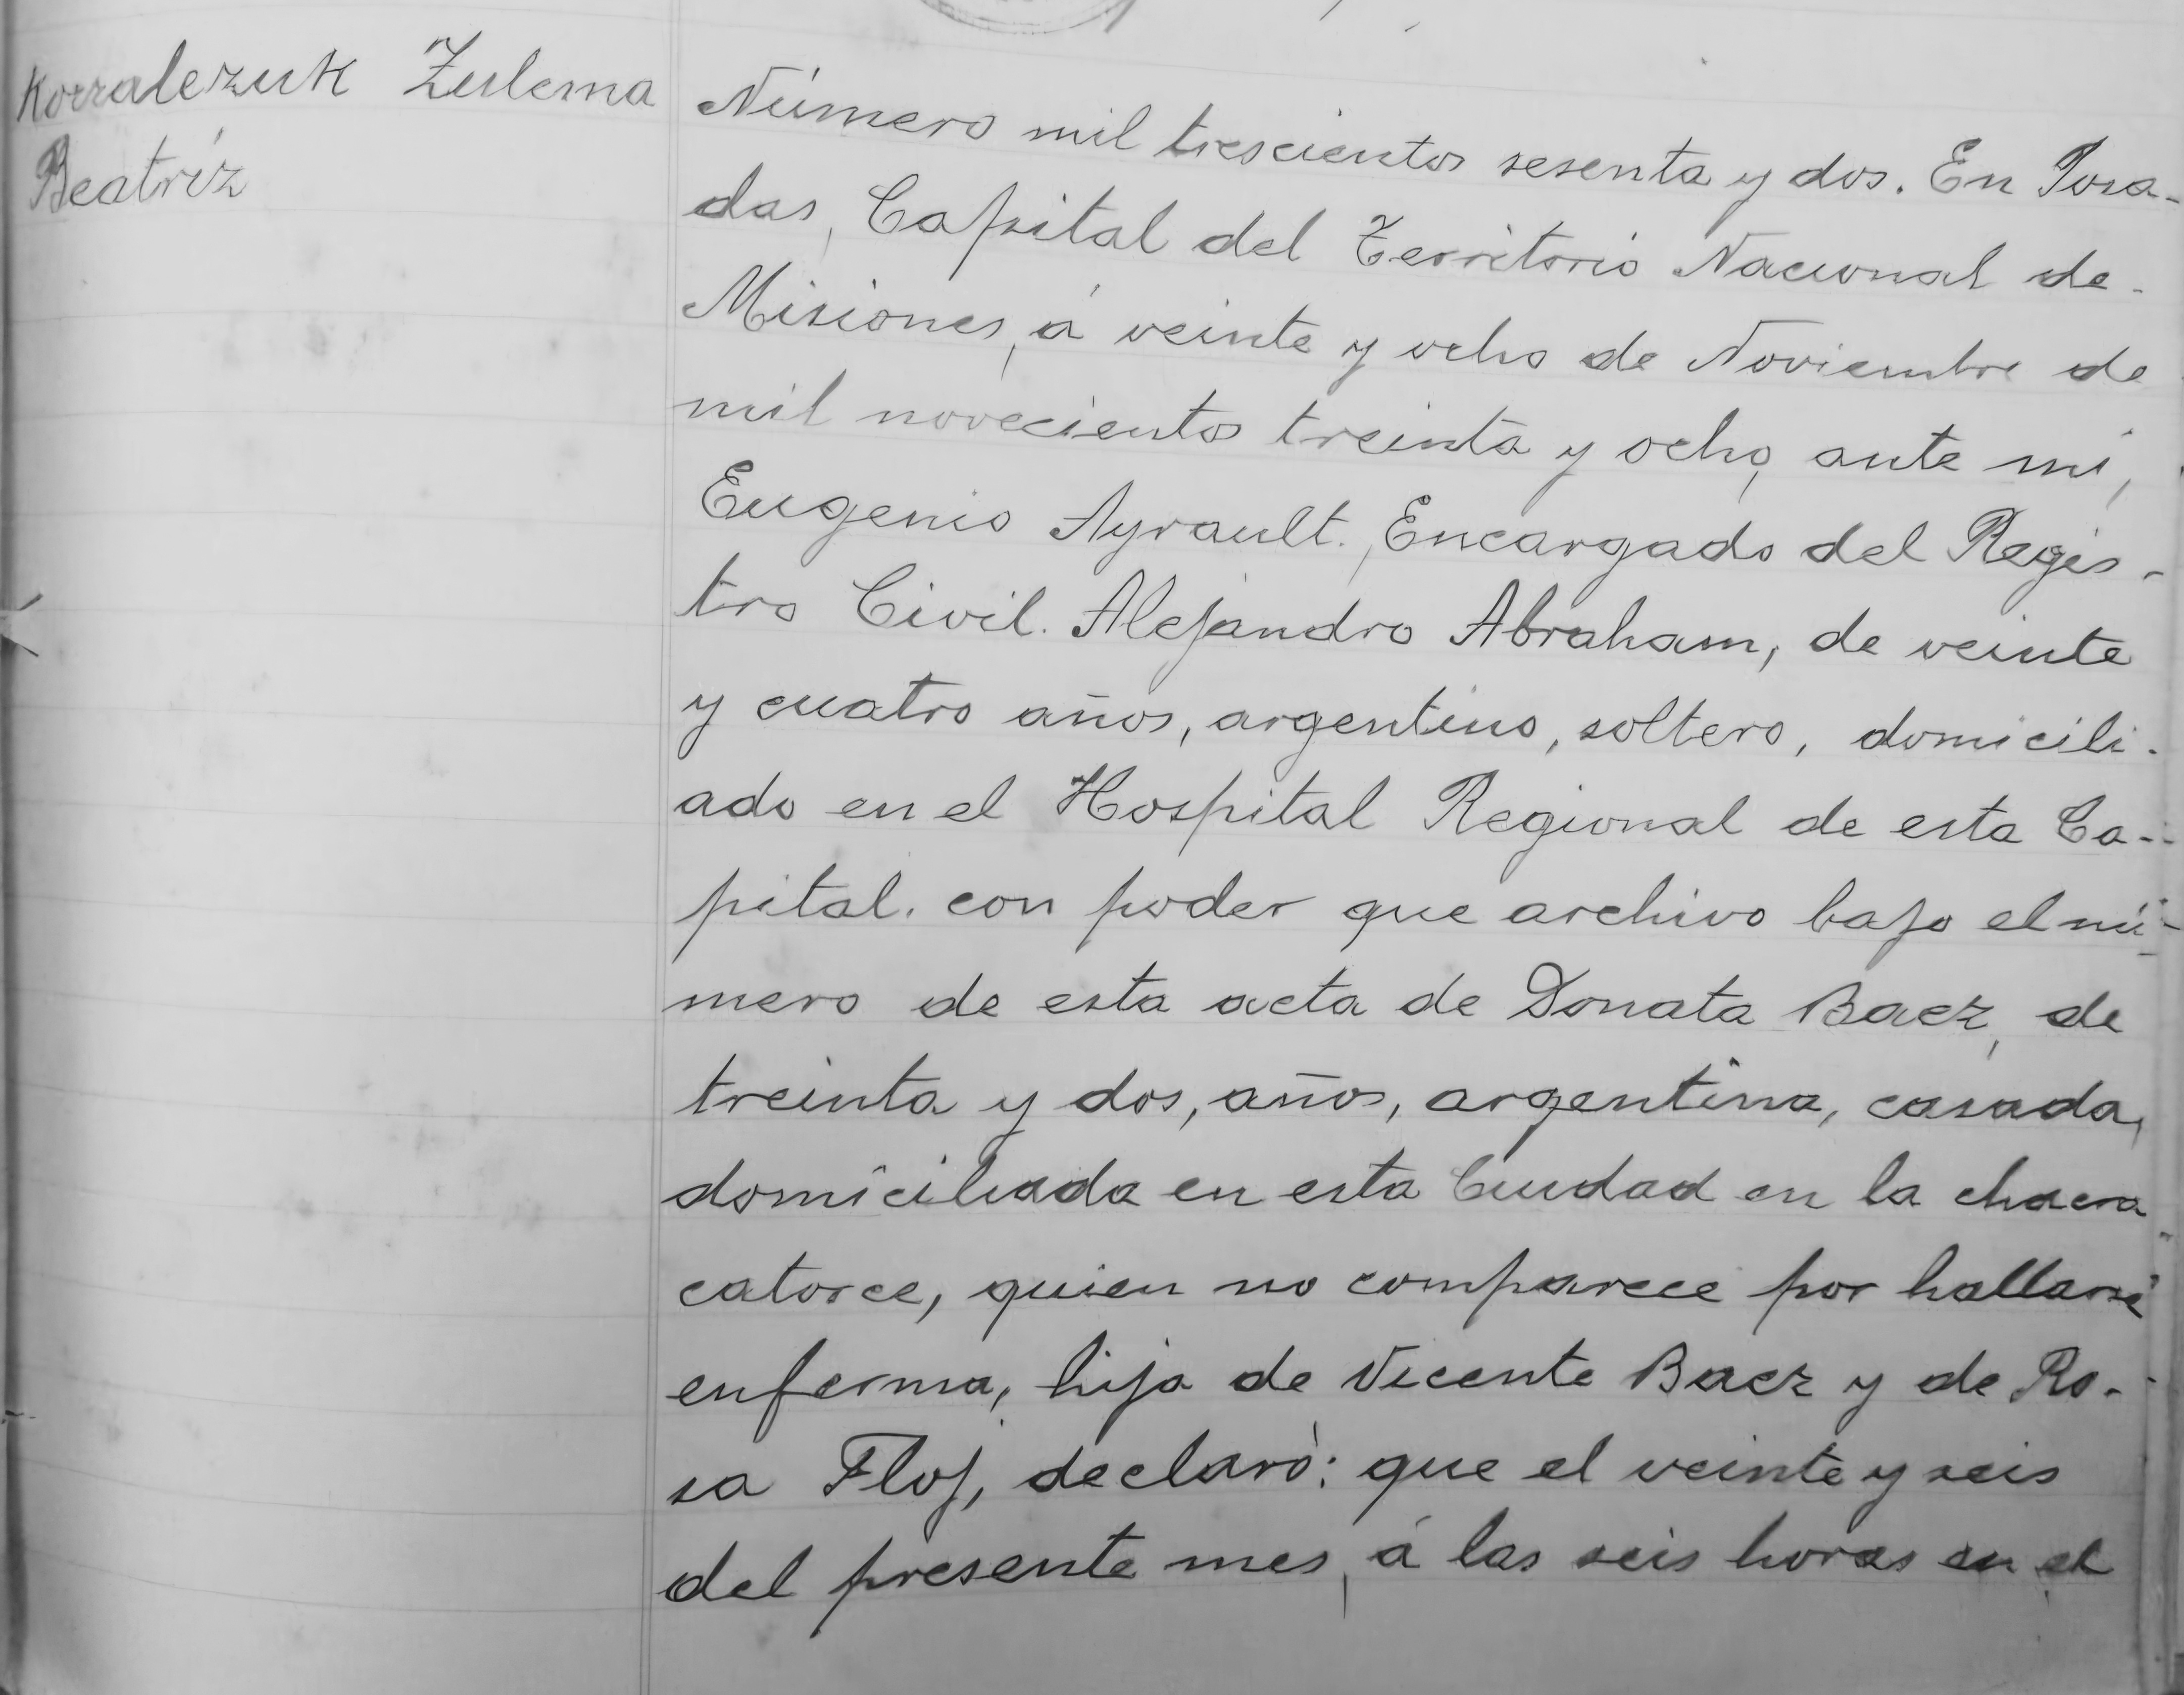 Korralezuk Zulema
Beatríz
Número mil trescientos sesenta y dos. En Posa-
das, Capital del Territorio Nacional de
Misiones, á veinte y ocho de Noviembre de
mil novecientos treinta y ocho, ante mí,
Eugenio Ayrault, Encargado del Regis-
tro Civil. Alejandro Abraham, de veinte
y cuatro años, argentino, soltero, domicili-
ado en el Hospital Regional de esta Ca-
pital. con poder que archivo bajo el nú-
mero de esta acta de Donata Baez, de
treinta y dos, años, argentina, casada,
domiciliada en esta Ciudad en la chacra
catorce, quien no comparece por hallarse
enferma, hija de Vicente Baez y de Ro-
sa Floj, declaró: que el veinte y seis
del presente mes, á las seis horas en el